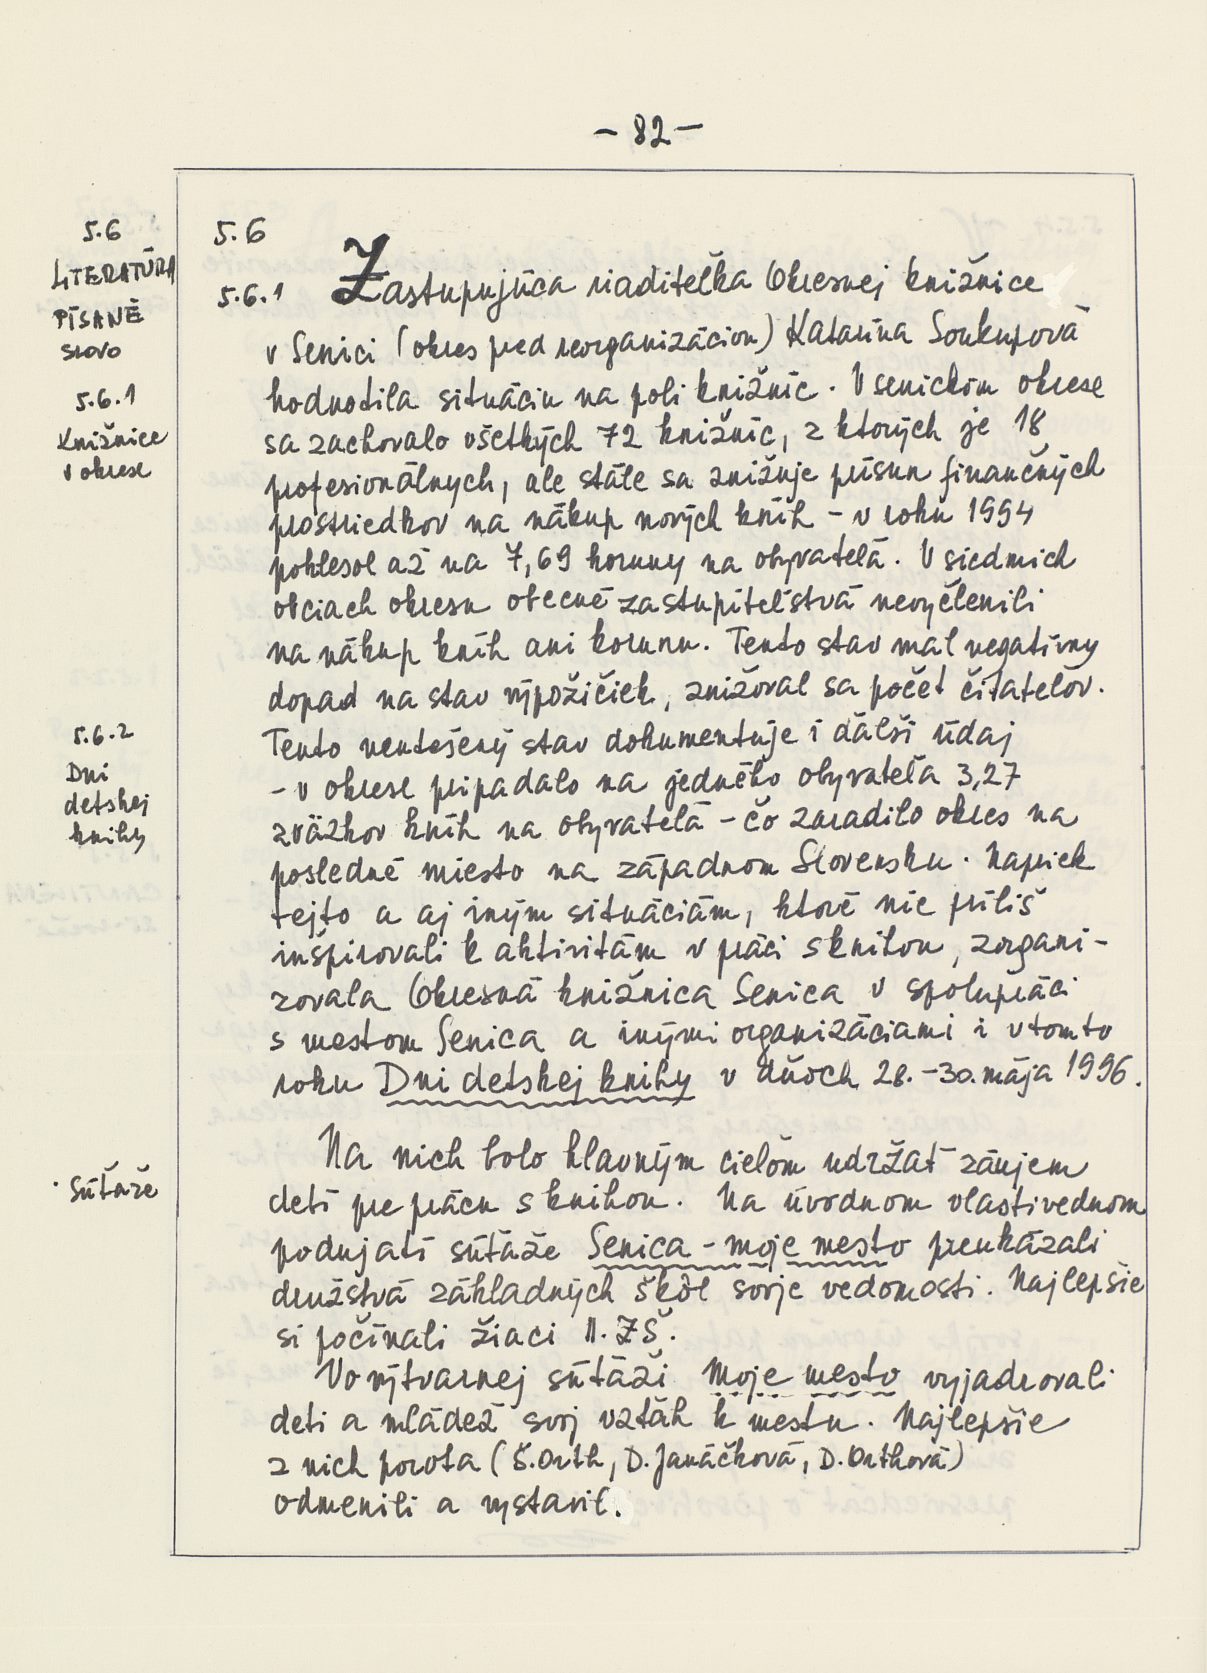 - 82 -
5.6
LITERATÚRA
PÍSANÉ
SLOVO
5.6.1
Knižnice
v okrese
5.6
5.6.1 Zastupujúca riaditeľka Okresnej knižnice
v Senici (okres pred reorganizáciou) Katarína Soukupová
hodnotila situáciu na poli knižníc. V senickom okrese
sa zachovalo všetkých 72 knižníc, z ktorých je 18
profesionálnych, ale stále sa znižuje prísun finančných
prostriedkov na nákup nových kníh - v roku 1994
poklesol až na 7,69 koruny na obyvateľa. V siedmich
obciach okresu obecné zastupiteľstvá nevyčlenili
na nákup kníh ani korunu. Tento stav mal negatívny
dopad na stav výpožičiek, znižoval sa počet čitateľov.
Tento neutešený stav dokumentuje i ďalší údaj
- v okrese pripadalo na jedného obyvateľa 3,27
zväzkov kníh na obyvateľa - čo zaradilo okres na
posledné miesto na západnom Slovensku. Napriek
tejto a aj iným situáciám, ktoré nie príliš
inšpirovali k aktivitám v práci s knihou, zorgani-
zovala Okresná knižnica Senica v spolupráci
s mestom Senica a inými organizáciami i v tomto
roku Dni detskej knihy v dňoch 28.-30. mája 1996.
5.6.2
Dni
detskej
knihy
Na nich bolo hlavným cieľom udržať záujem
detí pre prácu s knihou. Na úvodnom vlastivednom
podujatí súťaže Senica - moje mesto preukázali
družstvá základných škôl svoje vedomosti. Najlepšie
si počínali žiaci II. ZŠ.
Vo výtvarnej súťaži Moje mesto vyjadrovali
deti a mládež svoj vzťah k mestu. Najlepšie
z nich porota (Š. Orth, D. Janáčková, D. Orthová)
odmenili a vystavil.
Súťaže